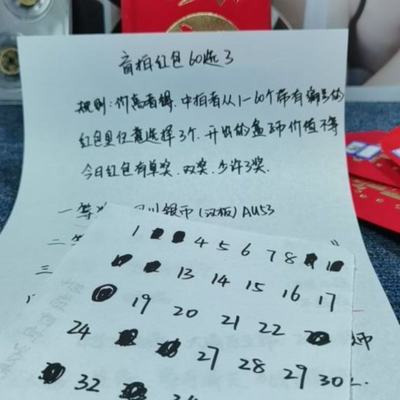 盲拍红包60选3
规则:价高者得.中拍者从1-60个带有编号的
红包里任意选择3个.开出的盒币价值不等
今日红包有单奖.双奖.少许3奖.
一等 川银币(汉板)AU53
二
三
1 4 5 6 7 8
13 14 15 16 17
19 20 21 22
24 27 28 29 30
32
币